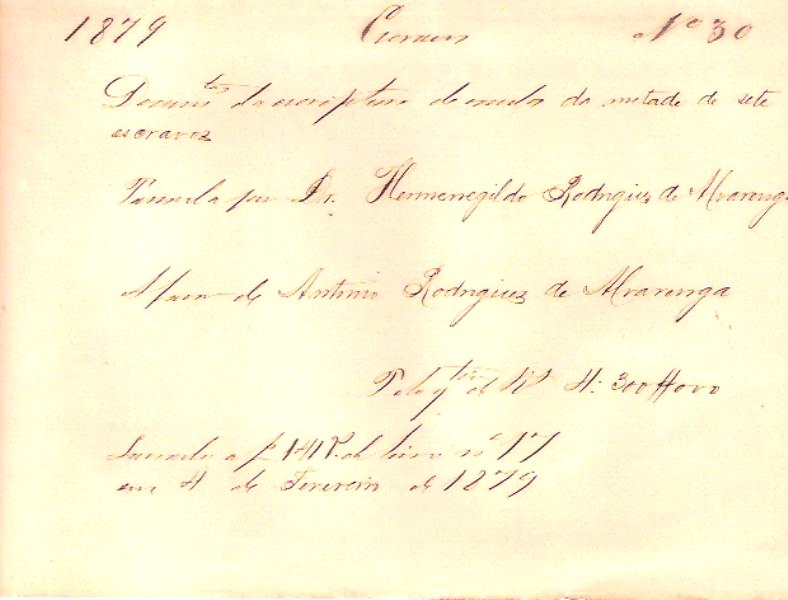 1879 Nº 30
Docum.tos da escriptura de venda da metade de sete
escravos
Passada por Dr. Hermenegildo Rodrigues de Alvarenga
A favor de Antonio Rodrigues de Alvarenga
Pela q.tia de Rs 4:300#000
Lançada a f 141 do livro nº 17
em 4 de Fevereiro de 1879